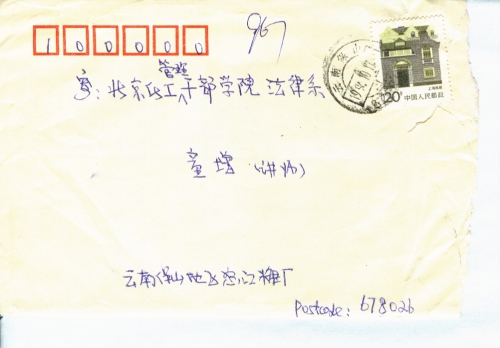 100000
967
管理
寄：北京化工干部学院 法律系
童增（讲师）
云南保山地区怒江糖厂
Postcode: 678026
20分 中国人民邮政
上海民居
云南保山